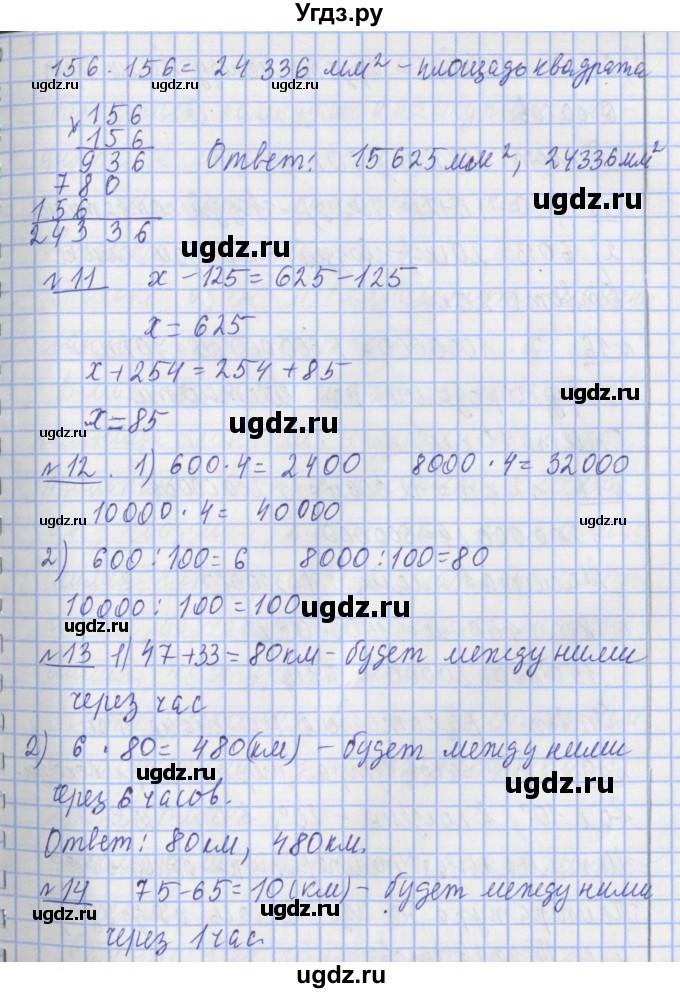 Угдз.ру
156 · 156 = 24 336 мм² - площадь квадрата
× 156
156
936
Ответ: 15 625 мм², 24336 мм²
780
ugdz.ru
156
24336
ugdz.ru
ugdz.ru
№ 11 x - 125 = 625 - 125
ugdz.ru
x = 625
x + 254 = 254 + 85
x = 85
ugdz.ru
ugdz.ru
№ 12. 1) 600 · 4 = 2400 8000 · 4 = 32 000
ugdz.ru
10000 · 4 = 40 000
ugdz.ru
2) 600 : 100 = 6 8000 : 100 = 80
10000 : 100 = 100
ugdz.ru
ugdz.ru
№ 13 1) 47 + 33 = 80 км - будет между ними
через час
ugdz.ru
2) 6 · 80 = 480 (км) - будет между ними
ugdz.ru
ugdz.ru
через 6 часов.
Ответ: 80 км, 480 км.
№ 14 75 - 65 = 10 (км) - будет между ними
ugdz.ru
ugdz.ru
через 1 час.
ugdz.ru